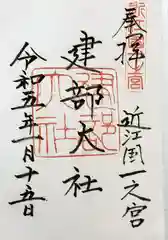 奉拝
近江国一之宮
建部大社
令和五年一月十五日